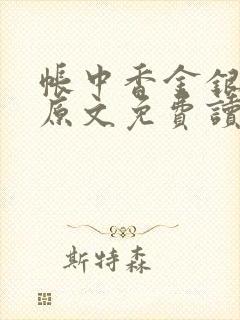 帳中香金銀
原文免費讀
斯特森